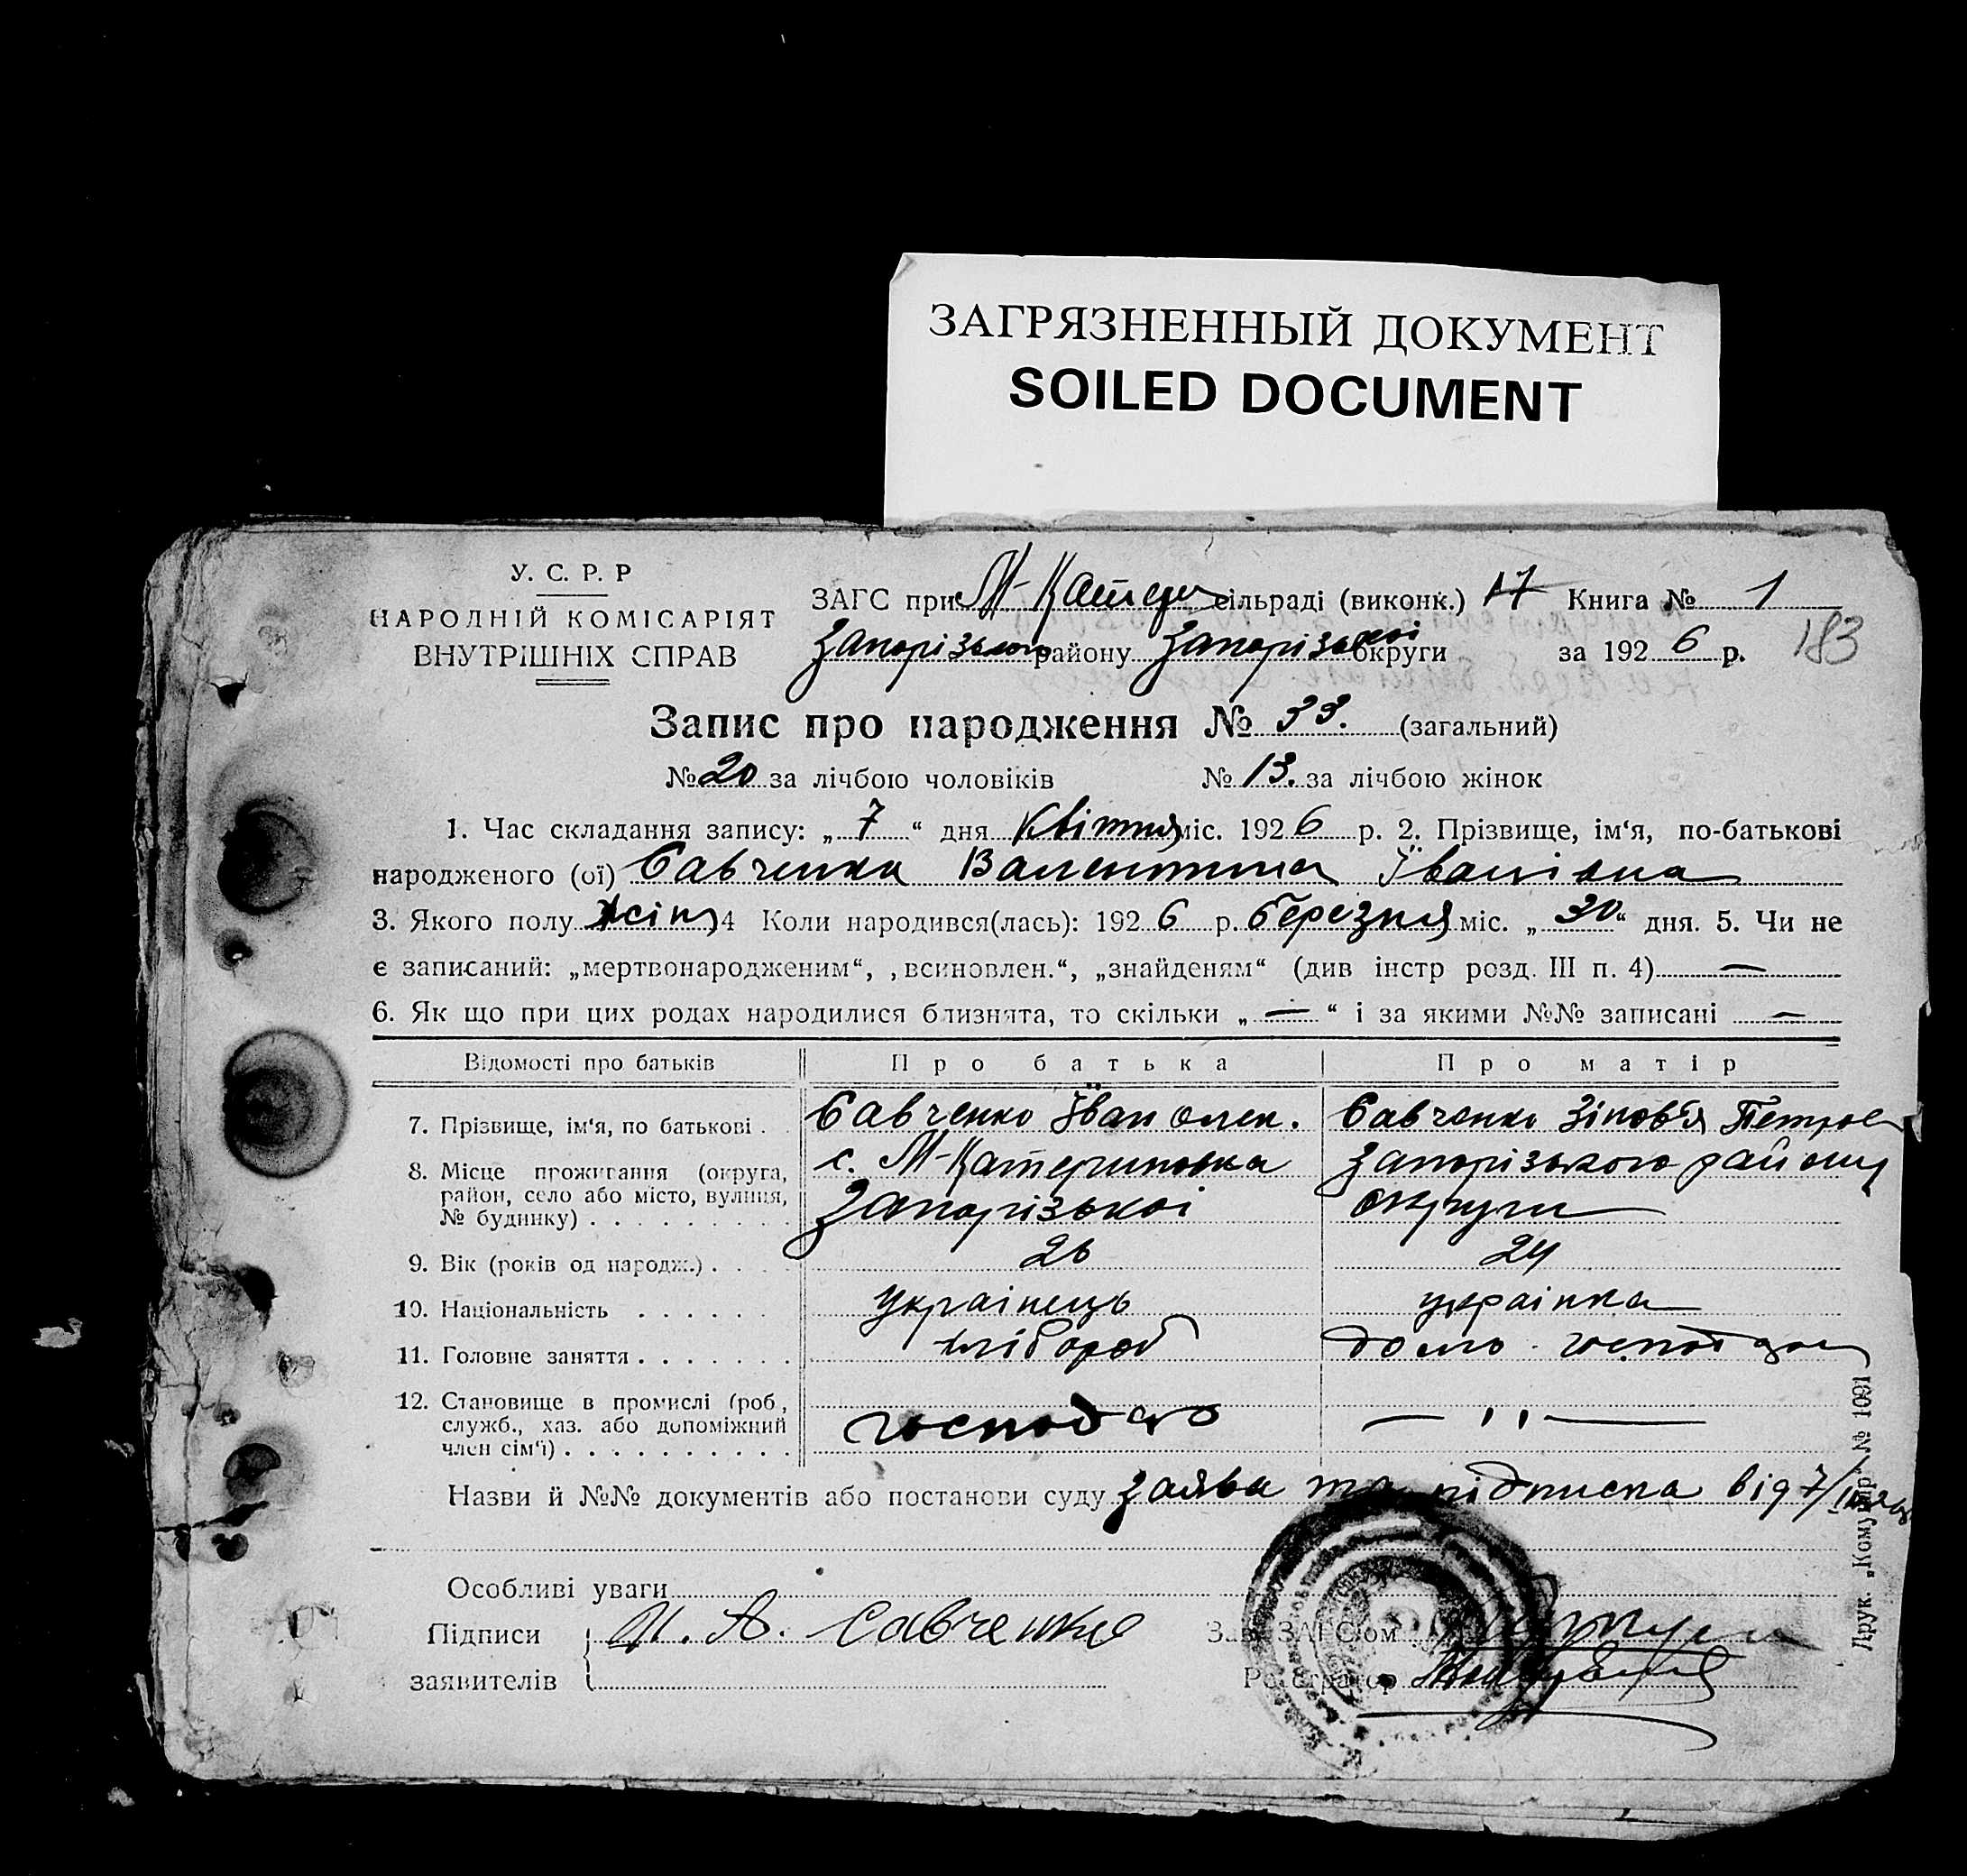 ЗАГРЯЗНЕННЫЙ ДОКУМЕНТ
SOILED DOCUMENT
У. С. Р. Р
НАРОДНІЙ КОМІСАРІЯТ
ВНУТРІШНІХ СПРАВ
ЗАГС при М-Катер сільраді (виконк.) 17 Книга № 1
Запорізького району Запорізької округи за 1926 р. 183
Запис про народження № 33. (загальний)
№ 20 за лічбою чоловіків № 13. за лічбою жінок
1. Час складання запису: „7“ дня Квітня міс. 1926 р. 2. Прізвище, ім‘я, по-батькові
народженого (ої) Савченко Валентина Іванівна
3. Якого полу жіноч 4 Коли народився(лась): 1926 р. березня міс. „30“ дня. 5. Чи не
є записаний: „мертвонародженим“, „всиновлен.“, „знайденям“ (див інстр розд. III п. 4) —
6. Як що при цих родах народилися близнята, то скільки „—“ і за якими №№ записані —
Відомості про батьків Про батька Про матір
7. Прізвище, ім‘я, по батькові . Савченко Іван Олек. Савченко Зіновія Петров
8. Місце проживання (округа, район, село або місто, вулиця, № будинку) . . . . . . . . . с. М-Катериновка Запорізького району
Запорізької округи
9. Вік (років од народж.) . . . . 26 24
10. Національність . . . . . . українець українка
11. Головне заняття . . . . . . . хлібороб домо. господар
12. Становище в промислі (роб., служб., хаз. або допоміжний член сім‘ї) . . . . . . . . . . господар — " —
Назви й №№ документів або постанови суду заява та підписка від 7/IV
Особливі уваги
Підписи И. А. Савченко Зав. ЗАГС‘ом
заявителів Реєстратор
Друк. „Комунар“ № 1091